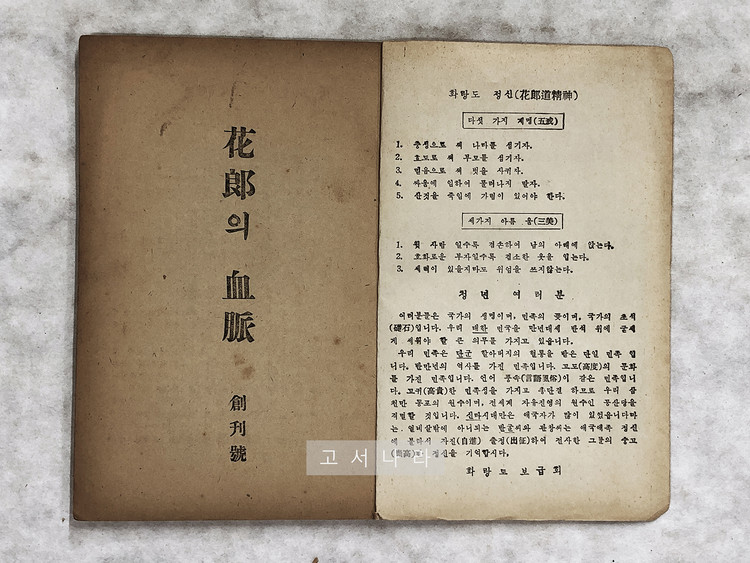 花郎의 血脈
創刊號
화랑도 정신(花郎道精神)
다섯 가지 계명(五戒)
1. 충성으로 써 나라를 섬기자.
2. 효도로 써 부모를 섬기자.
3. 믿음으로 써 벗을 사귀자.
4. 싸움에 임하여 물러나지 말자.
5. 산것을 죽임에 가림이 있어야 한다.
세가지 아름 움(三美)
1. 윗 사람 일수록 겸손하여 남의 아래에 앉는다.
2. 호화로운 부자일수록 검소한 옷을 입는다.
3. 세력이 있을지라도 위엄을 쓰지않는다.
청년 여러분
여러분들은 국가의 생명이며, 민족의 꽃이며, 국가의 초석
(礎石)입니다. 우리 대한 민국을 만년대계 반석 위에 굳세
게 세워야 할 큰 의무를 가지고 있읍니다.
우리 민족은 단군 할아버지의 혈통을 받은 단일 민족 입
니다. 반만년의 역사를 가진 민족입니다. 고도(高度)의 문화
를 가진 민족입니다. 언어 풍속(言語風俗)이 같은 민족입니
다. 고귀(高貴)한 민족성을 가지고 총단결 하므로 우리 삼
천만 동포의 원수이며, 전세계 자유진영의 원수인 공산당을
격멸할 것입니다. 신라시대만은 애국자가 많이 있었읍니다마
는 열네살밖에 아니되는 반굴씨와 관창씨는 애국애족 정신
에 불타서 자진(自進) 출정(出征)하여 전사한 그들의 숭고
(崇高)한 정신을 기억합시다.
화랑도 보급회
고서나라